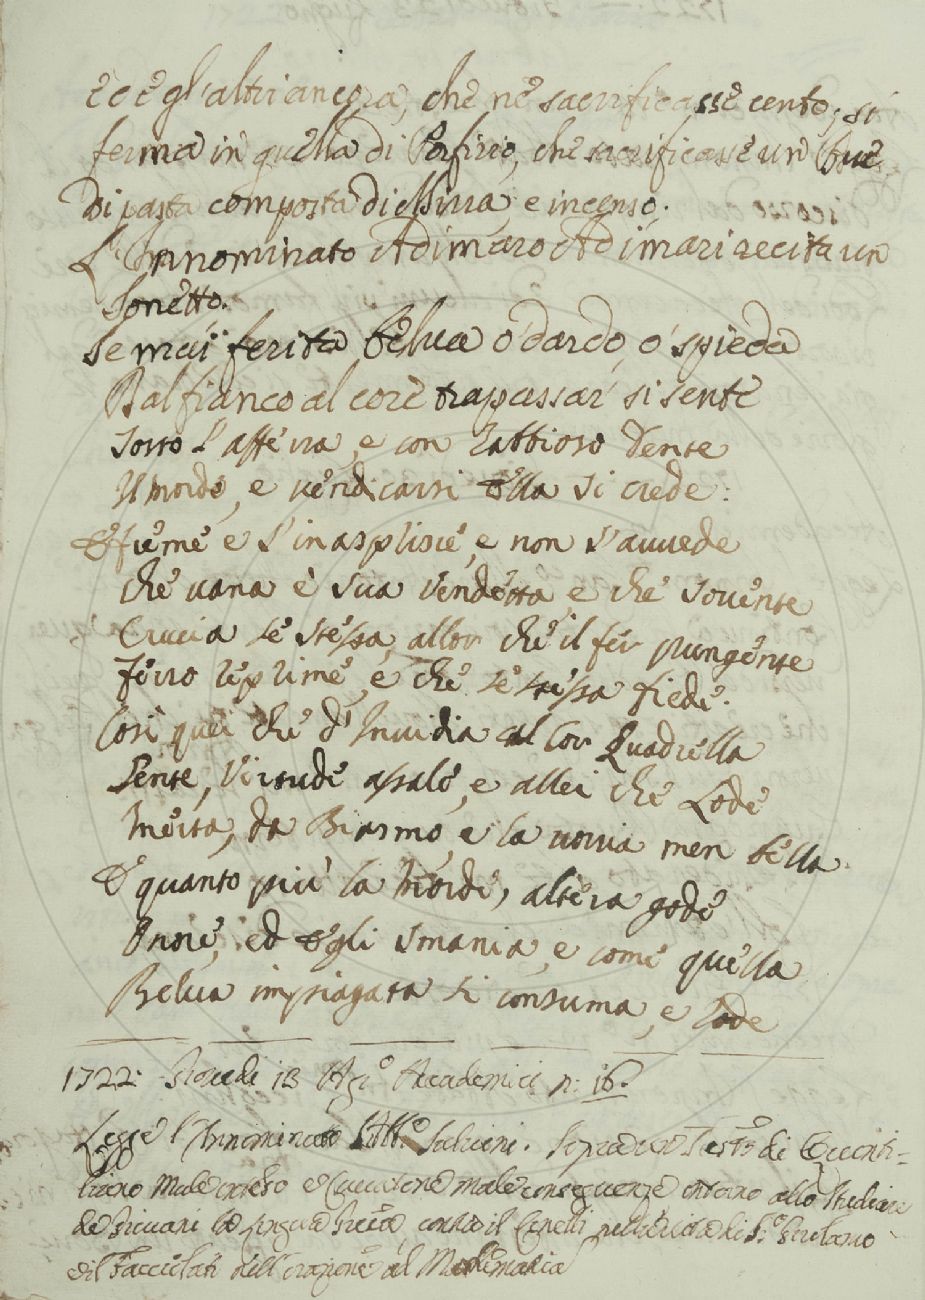 ed egl'altri ancora, che ne sacrificasse cento, si
ferma in quella di Porfirio, che sacrificasse un bue
di pasta composta di Mirra, e incenso.
L'Innominato Adimaro Adimari recita un
Sonetto.
Se mai ferita belua ò dardo, ò spieda
Dal fianco al core trapassar si sente
Tosto l'afferra, e con rabbioso dente
Il morde, e vendicarsi ella si crede:
E freme e s'inasprisce, e non s'avvede
Che vana è sua vendetta, e che sovente
Crucia se stessa, allor che il fer pungente
Ferro reprime, e che se stessa fiede.
Così quei che d'Invidia al Cor Quadrella
Sente, Virtude assale, e a lei che Lode
Merta, dà Biasmo, e la vorria men bella.
E quanto più la morde, altera gode
Onore, ed egli smania, e come quella
Belua impiagata si consuma, e rode
1722. Giovedi 13 Ag.o Accademici n: 16.
Legge l'Innominato Salvini. Sopra un Testo di Quinti=
liano male inteso e male conseguenze intorno allo studiare
la lingua Greca contro il Cinelli di S. Girolamo
e il Facciolati nell'orazione